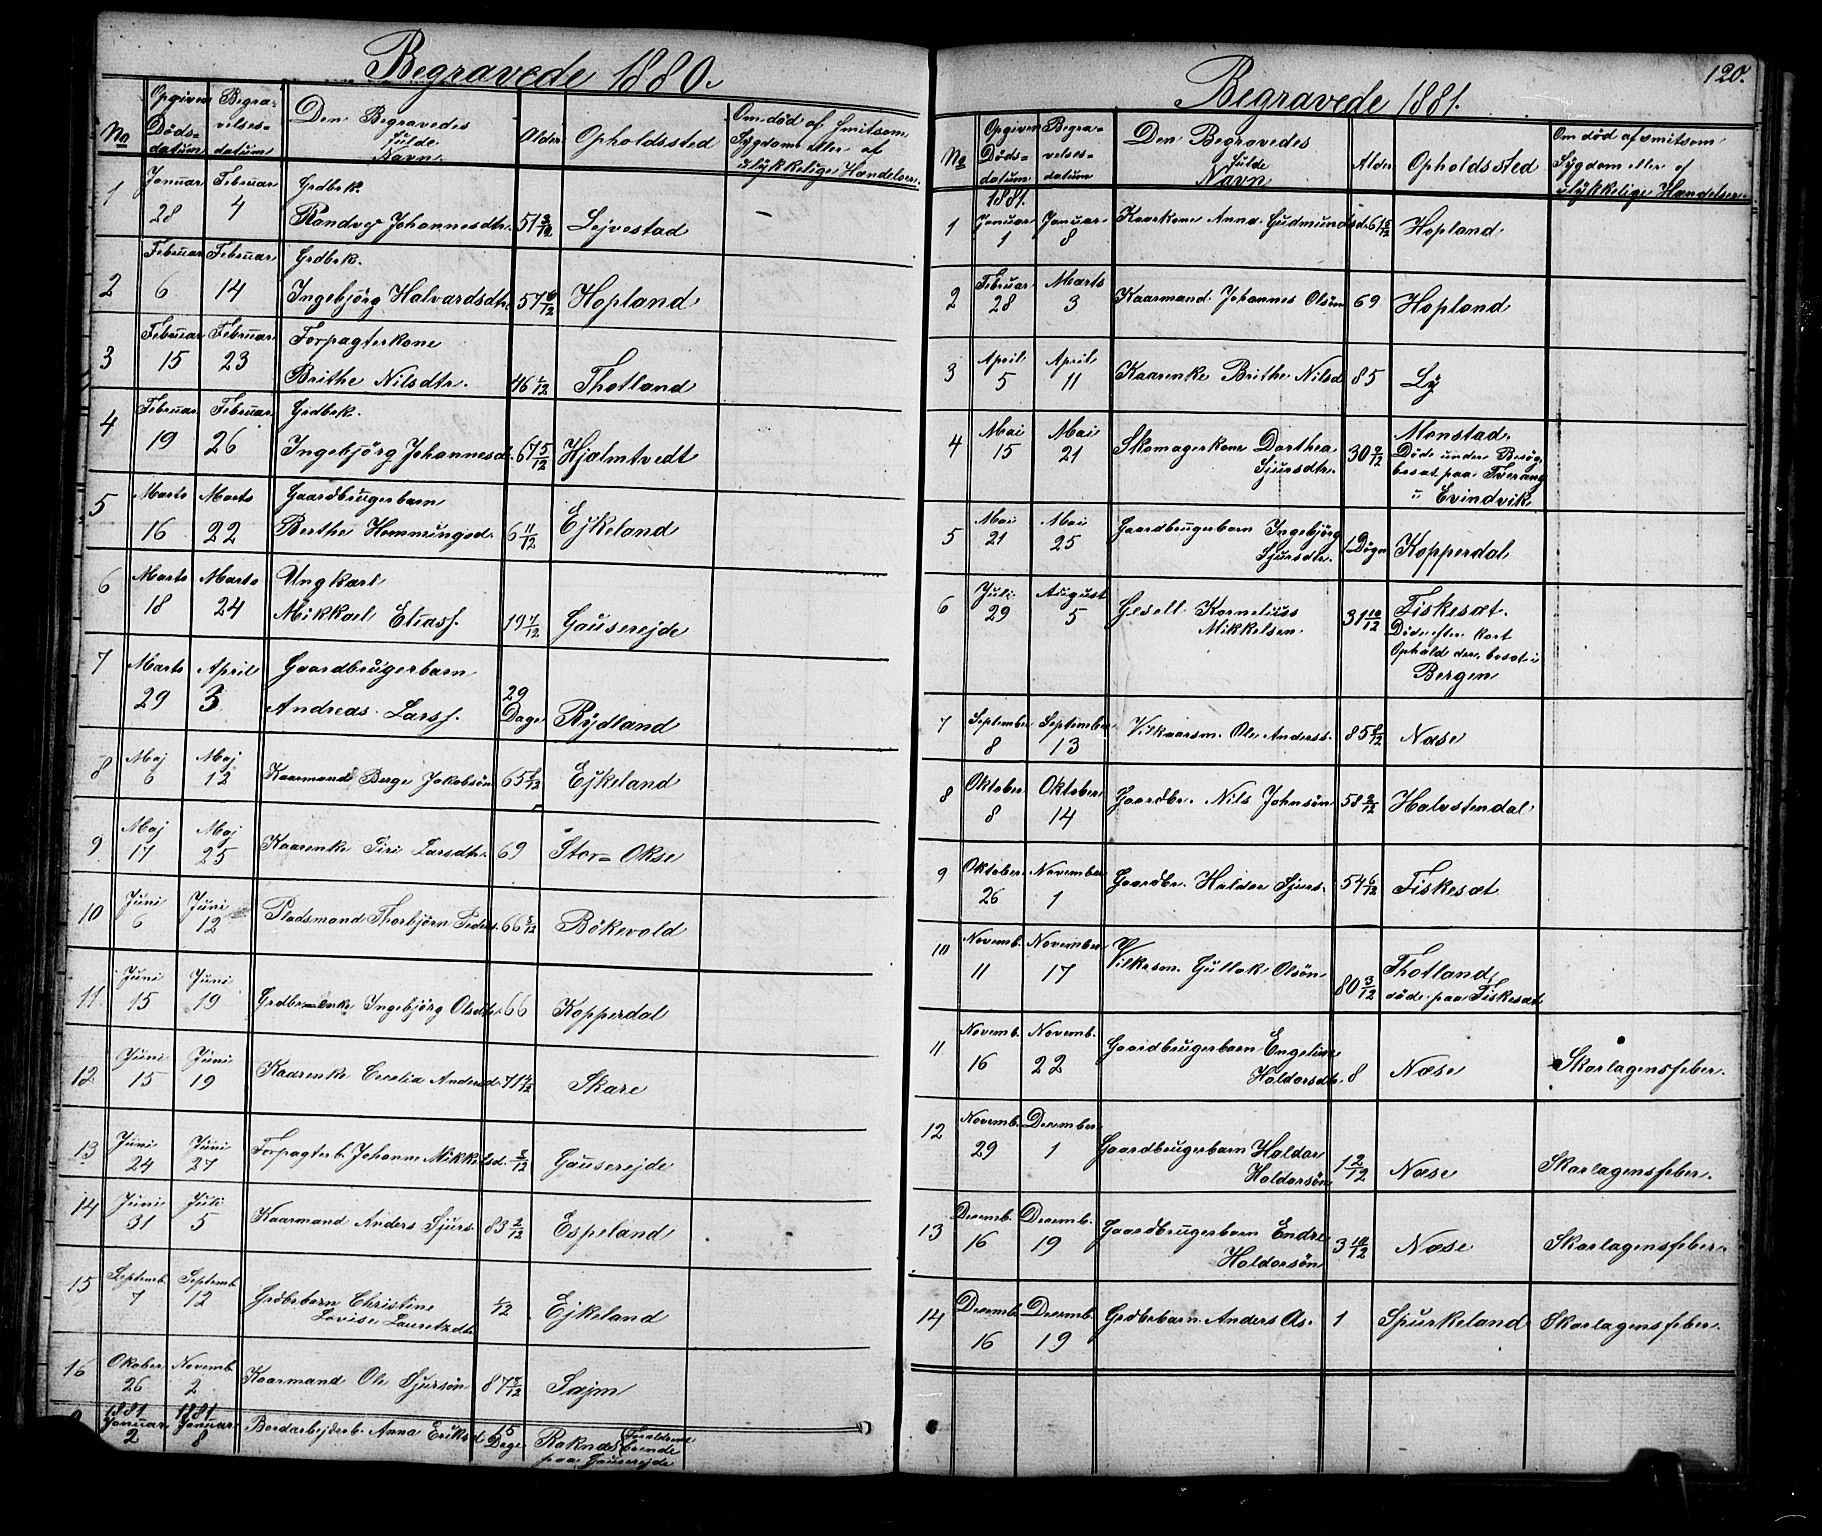 Begravede 1880.
No
Opgiven Dødsdatum
Begravelsesdatum
Den Begravedes fulde Navn
Alder
Opholdssted
Om død af Smitsom Sygdom eller af ulykkelige Hændelser.
1 Januar 28 Februar 4 Grdbrk. Randvej Johannesdtr. 51 Lejvestad -
2 Februar 6 Februar 14 Grdbrk. Ingebjörg Halvardsdtr. 57 Hopland
3 Februar 15 Februar 23 Forpagterkone Brithe Nilsdtr. 46 1/12 Thotland
4 Februar 19 Februar 26 Grdbrk. Ingebjörg Johannesd. 67 5/12 Hjalmtvedt
5 Marts 16 Marts 22 Gaardbrugerbarn Berthe Hemmingsd. 6 11/12 Ejkeland
6 Marts 18 Marts 24 Ungkarl Mikkael Eliass. 19 7/12 Gauserejde
7 Marts 29 April 3 Gaardbrugerbarn Andreas Larss. 29 Dage Rydland
8 Maj 6 Maj 12 Kaarmand Berge Jakobsön 65 Ejkeland
9 Maj 17 Maj 25 Kaarenke Siri Larsdtr. 69 Stor= Okse
10 Juni 6 Juni 12 Pladsmand Thorbjörn Peders. 66 Bökevold
11 Juni 15 Juni 19 Grdbr-enke Ingebjörg Olsdtr. 66 Kopperdal
12 Juni 15 Juni 19 Kaarenke Cecelia Andersd. 71 Skare
13 Juni 24 Juni 27 Forpagterb. Johanne Mikkelsd. 8/12 Gauserejde
14 Juni 31 Juli 5 Kaarmand Anders Sjurs. 83 2/12 Espeland
15 Septemb. 7 Septemb. 12 Grdbrbarn Christine Lovise Lauretzdtr 1/12 Ejkeland
16 Oktober 26 Novemb. 2 Kaarmand Ole Sjursön 87 Sajm
1881 Januar 2 1881 Januar 8 Bordarbejderb. Anna Eriksd. 15 Dage Raknæs (Forældrene boende paa Gauserejde
120.
Begravede 1881.
No
Opgiven Dødsdatum
Begravelsesdatum
Den Begravedes fulde Navn
Alder
Opholdssted
Om død af smitsom Sygdom eller af ulykkelige Hændelser.
1881.
1 Januar 1 Januar 8 Kaarkone Anna Gudmundsdr. 61 Hopland
2 Februar 28 Marts 3 Kaarmand Johannes Olsön 69 Hopland
3 April 5 April 11 Kaarenke Brithe Nilsd 85 Ly
4 Mai 15 Mai 21 Skomagerkone Dorthea Sjursdtr. 30 Monstad. Döde under Besøg, bosat paa Tverang i Evindvik
5 Mai 21 Mai 25 Gaardbrugerbarn Ingebjörg Sjursdtr. 1 Døgn Kopperdal
6 Juli 29 August 5 Gesell Kornelius Mikkelsen 31 10/12 Fiskesæt. Döde efter kort Ophold der, bosat i Bergen
7 September 8 September 13 Vilkaarsm. Ole Anderss. 85 Næse
8 Oktober 8 Oktober 14 Gaardbr. Nils Johnsön 58 2/12 Halvstendal
9 Oktober 26 November 1 Gaardbr. Haldor Sjurs. 54 6/12 Fiskesæt
10 Novemb. 11 November 17 Vilkrsm. Gullak Olsön 80 3/12 Thotland, döde paa Fiskesæt
11 Novemb. 16 Novemb. 22 Gaardbrugerbarn Engeline Haldorsdtr. 8 Næse Skarlagensfeber.
12 Novemb. 29 December 1 Gaardbrugerbarn Haldor Haldorsön 1 2/12 Næse Skarlagensfeber.
13 Decemb. 16 Decemb. 19 Gaardbrugerbarn Endre Haldorsön 3 10/12 Næse Skarlagensfeber.
14 Decemb. 16 Decemb. 19 Grdbrbarn Anders As. 1 Spurkeland Skarlagensfeber.